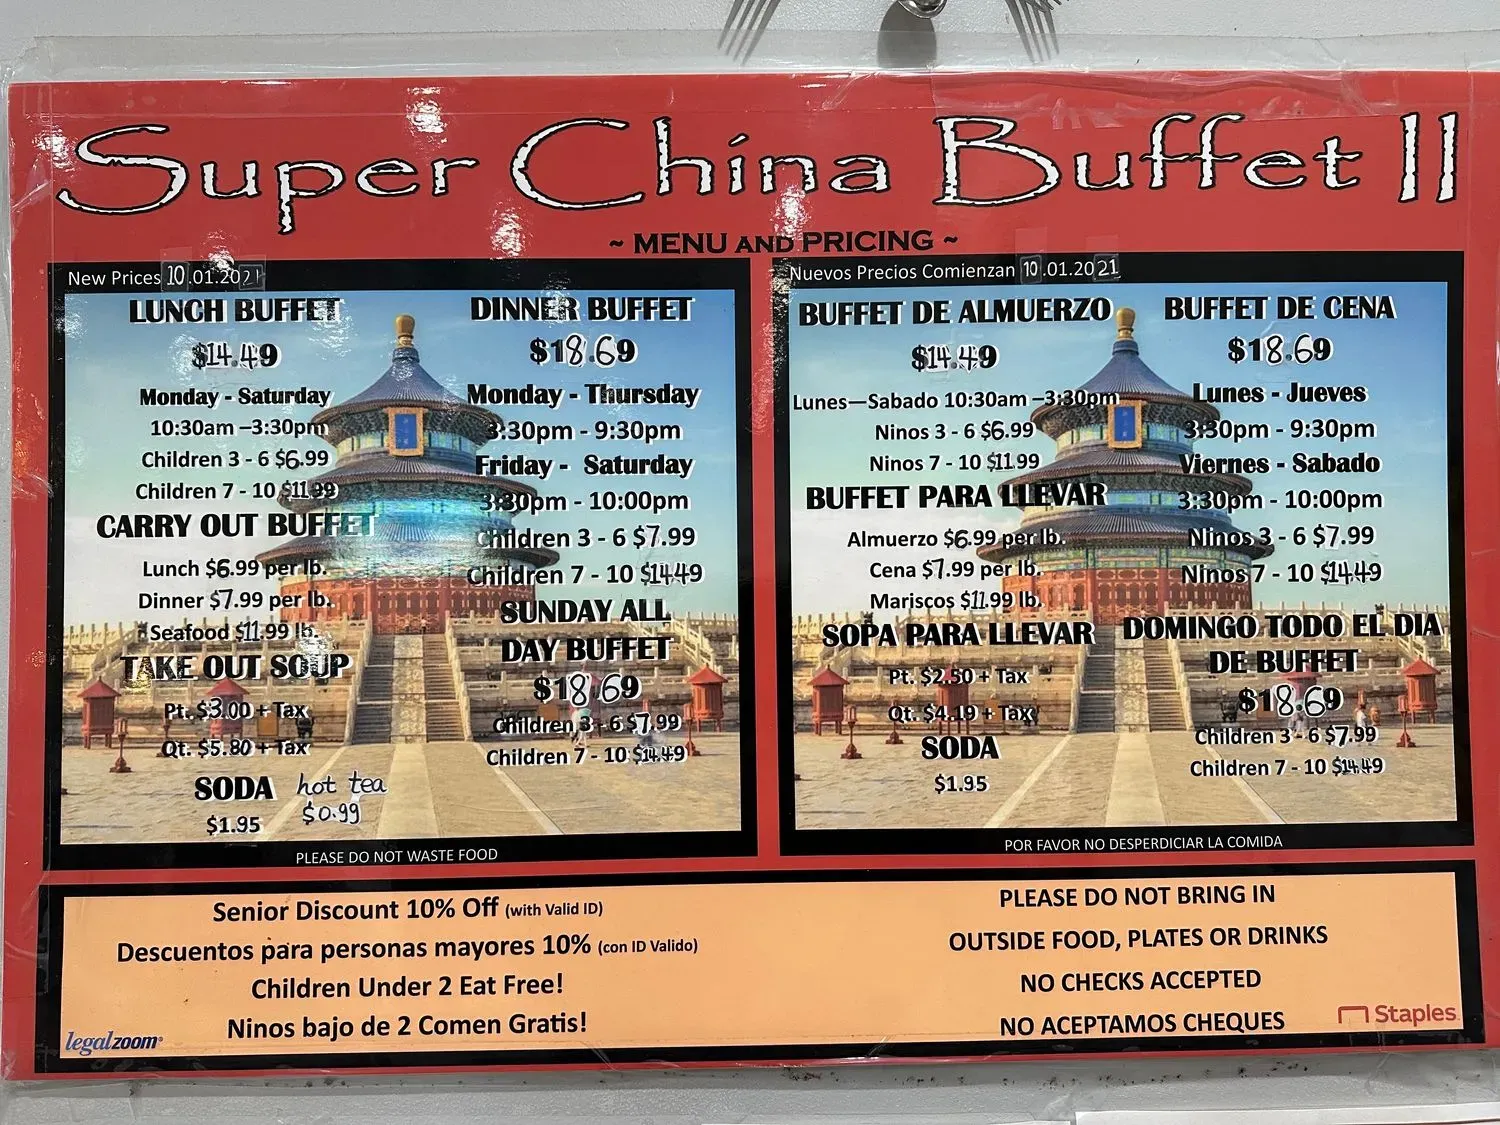 Super China Buffet II
~ MENU AND PRICING ~
New Prices 10.01.2021
LUNCH BUFFET
$14.49
Monday - Saturday
10:30am –3:30pm
Children 3 - 6 $6.99
Children 7 - 10 $11.99
CARRY OUT BUFFET
Lunch $6.99 per lb.
Dinner $7.99 per lb.
Seafood $11.99 lb.
TAKE OUT SOUP
Pt. $3.00 + Tax
Qt. $5.80 + Tax
SODA hot tea
$1.95 $0.99
DINNER BUFFET
$18.69
Monday - Thursday
3:30pm - 9:30pm
Friday - Saturday
3:30pm - 10:00pm
Children 3 - 6 $7.99
Children 7 - 10 $14.49
SUNDAY ALL
DAY BUFFET
$18.69
Children 3 - 6 $7.99
Children 7 - 10 $14.49
PLEASE DO NOT WASTE FOOD
Nuevos Precios Comienzan 10.01.2021
BUFFET DE ALMUERZO
$14.49
Lunes—Sabado 10:30am –3:30pm
Ninos 3 - 6 $6.99
Ninos 7 - 10 $11.99
BUFFET PARA LLEVAR
Almuerzo $6.99 per lb.
Cena $7.99 per lb.
Mariscos $11.99 lb.
SOPA PARA LLEVAR
Pt. $2.50 + Tax
Qt. $4.19 + Tax
SODA
$1.95
BUFFET DE CENA
$18.69
Lunes - Jueves
3:30pm - 9:30pm
Viernes - Sabado
3:30pm - 10:00pm
Ninos 3 - 6 $7.99
Ninos 7 - 10 $14.49
DOMINGO TODO EL DIA
DE BUFFET
$18.69
Children 3 - 6 $7.99
Children 7 - 10 $14.49
POR FAVOR NO DESPERDICIAR LA COMIDA
Senior Discount 10% Off (with Valid ID)
Descuentos para personas mayores 10% (con ID Valido)
Children Under 2 Eat Free!
Ninos bajo de 2 Comen Gratis!
legalzoom
PLEASE DO NOT BRING IN
OUTSIDE FOOD, PLATES OR DRINKS
NO CHECKS ACCEPTED
NO ACEPTAMOS CHEQUES
Staples